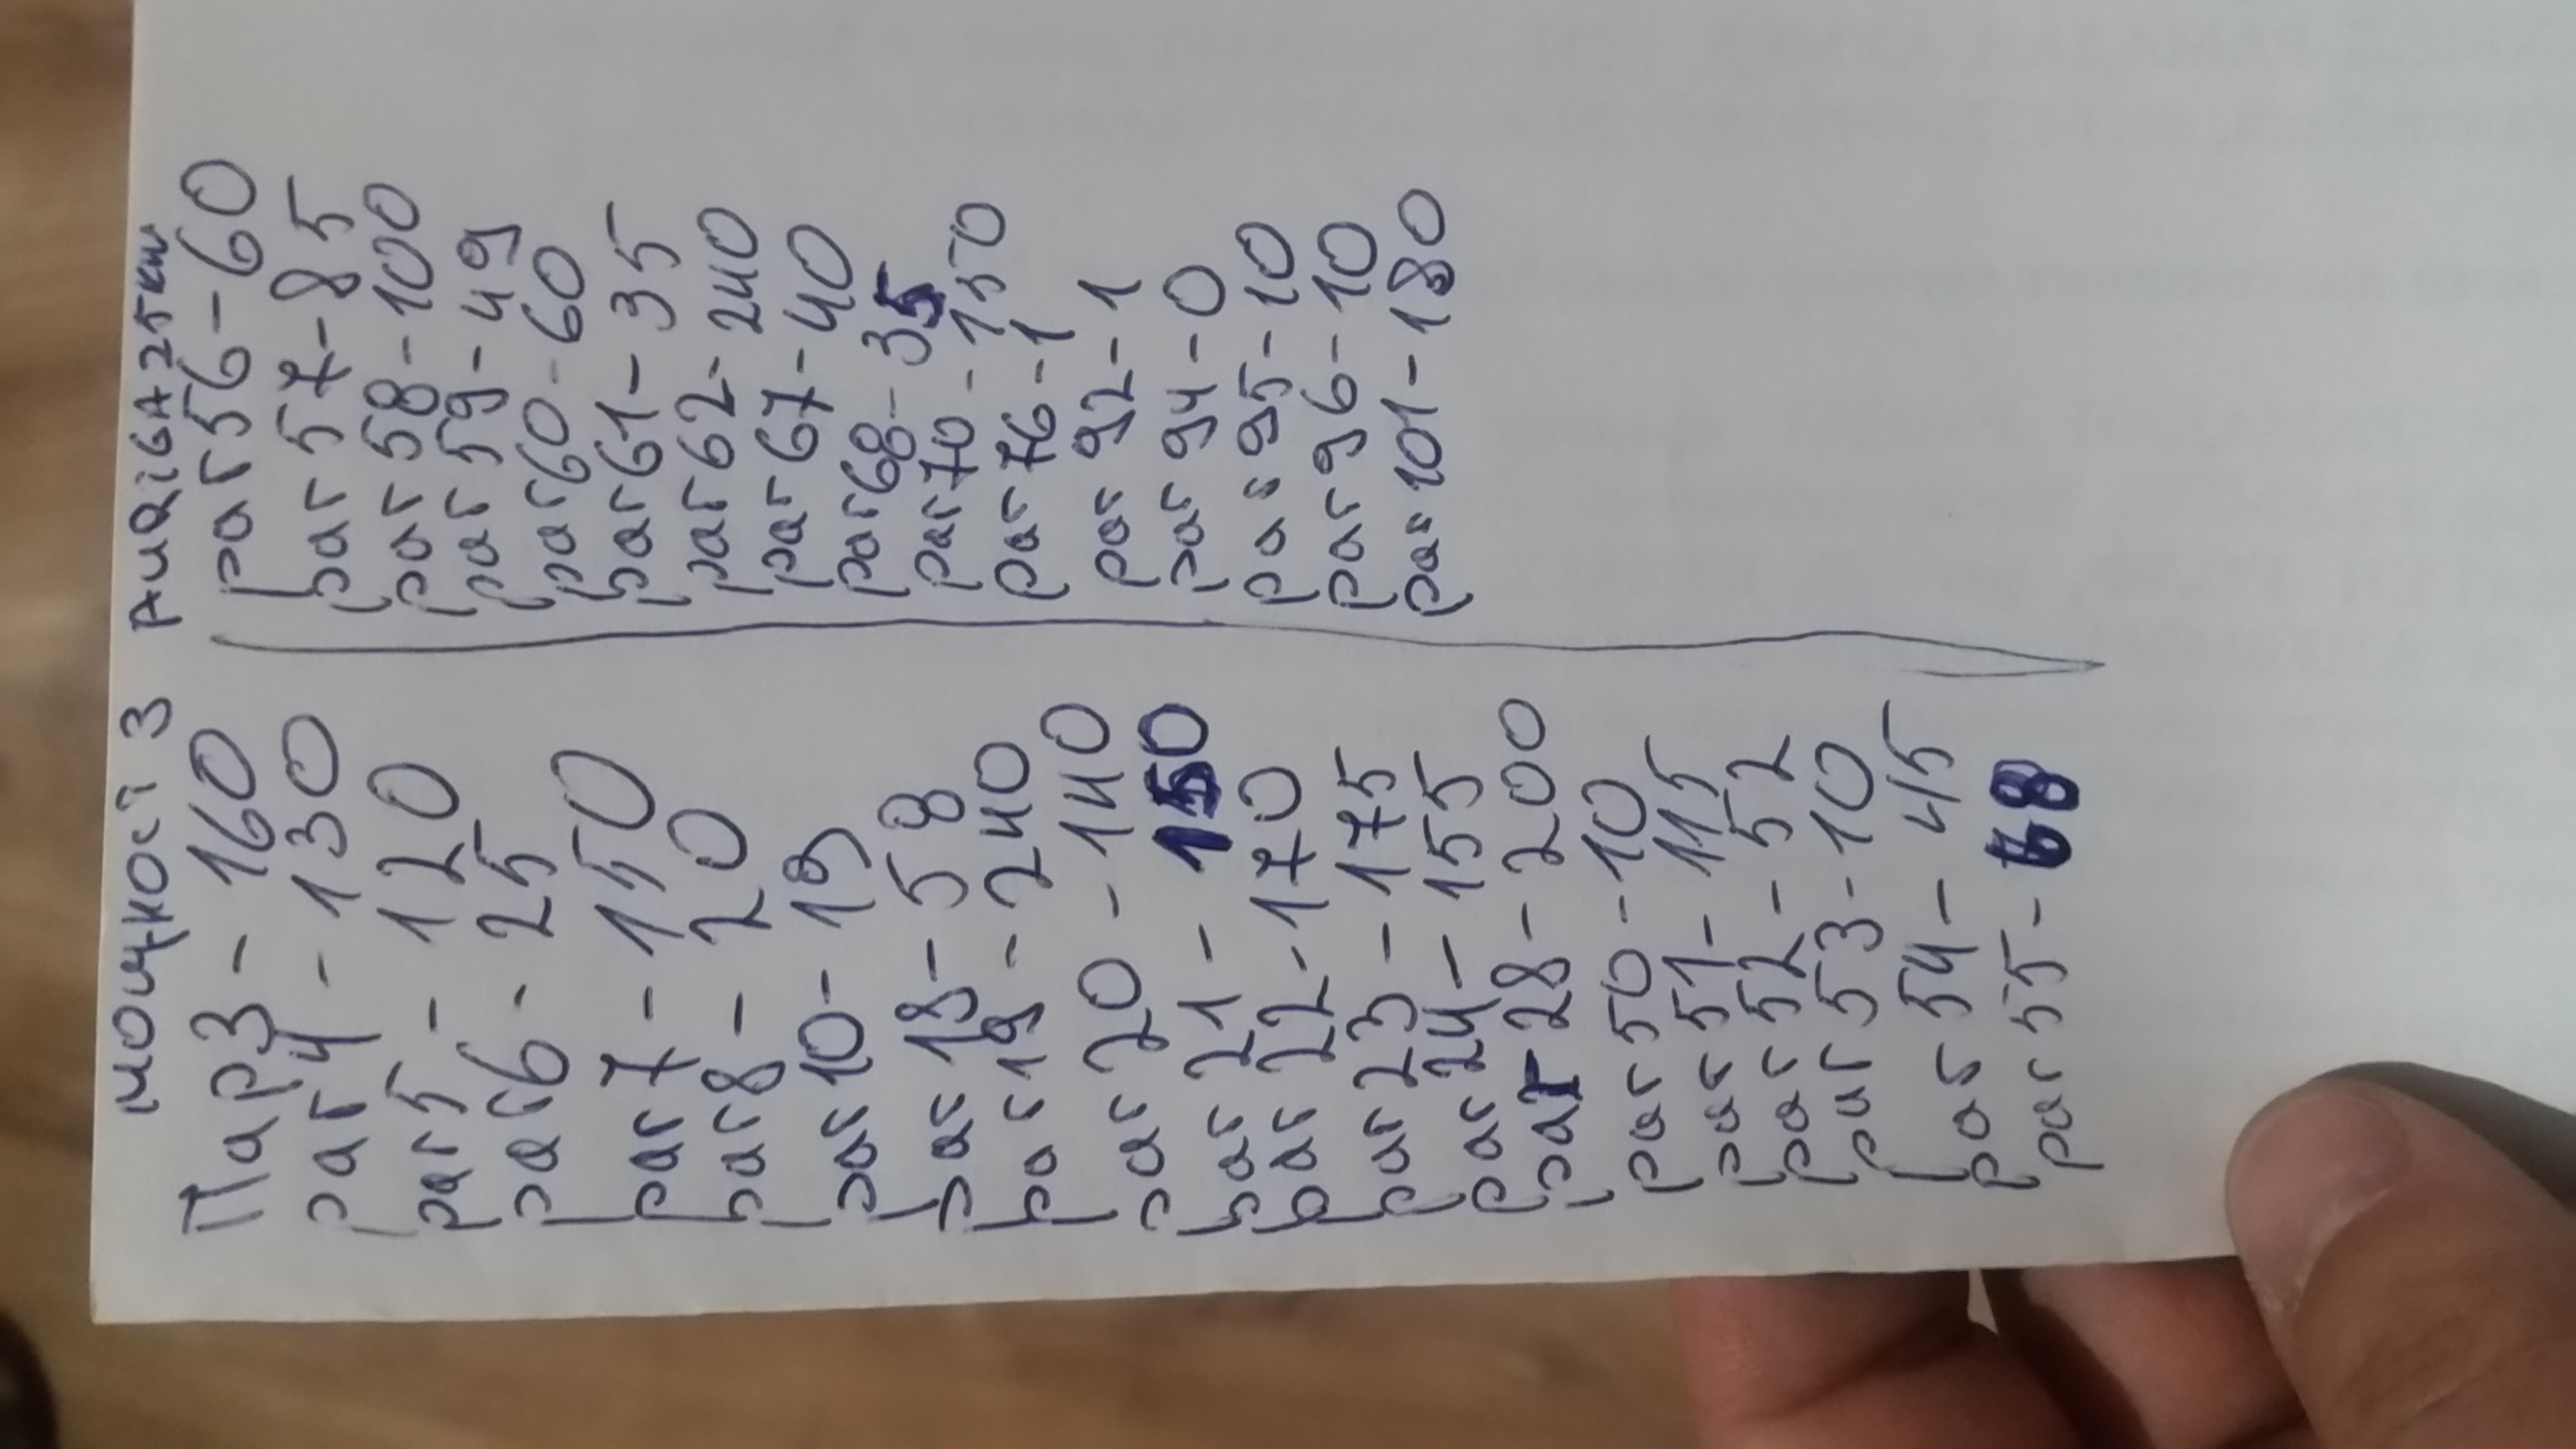 мощності з
Пар3 - 160
par4 - 130
par5 - 120
par6 - 25
par7 - 150
par8 - 20
par10 - 19
par18 - 58
par19 - 240
par20 - 140
par21 - 150
par22 - 170
par23 - 175
par24 - 155
par28 - 200
par50 - 10
par51 - 115
par52 - 52
par53 - 10
par54 - 45
par55 - 68
par56 - 60
par57 - 85
par58 - 100
par59 - 49
par60 - 60
par61 - 35
par62 - 240
par67 - 40
par68 - 35
par70 - 150
par76 - 1
par92 - 1
par94 - 0
par95 - 10
par96 - 10
par101 - 180